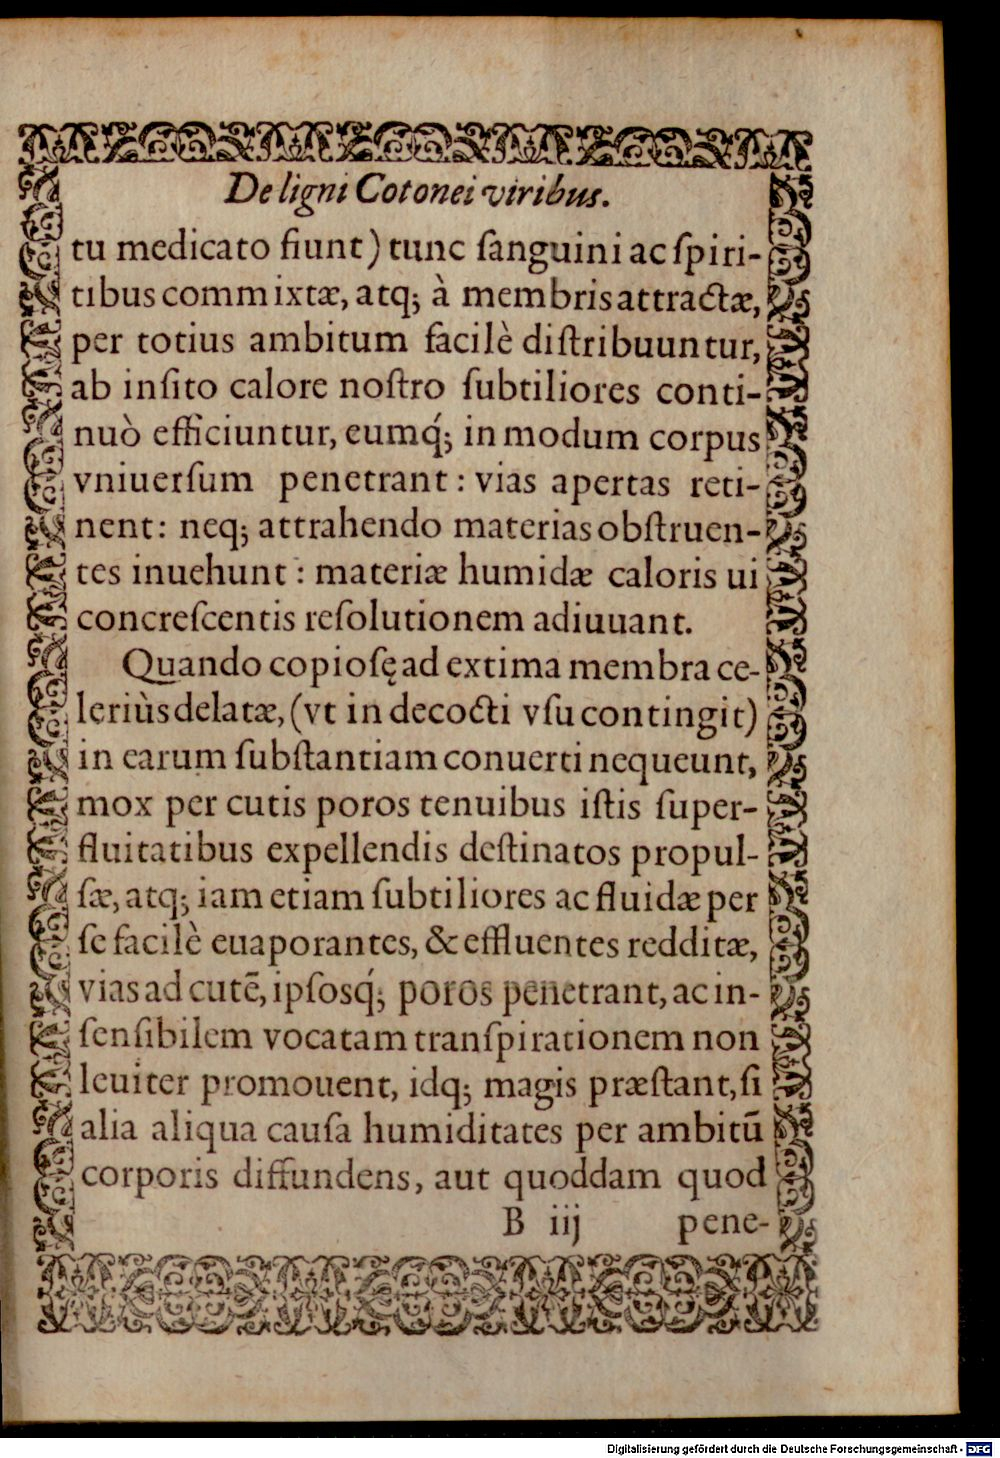 De ligni Cotonei viribus.
tu medicato fiunt) tunc ſanguini ac ſpiri-
tibus commixtæ, atq; à membris attractæ,
per totius ambitum facilè diſtribuuntur,
ab inſito calore noſtro ſubtiliores conti-
nuò efficiuntur, eumq́; in modum corpus
vniuerſum penetrant : vias apertas reti-
nent: neq; attrahendo materias obſtruen-
tes inuehunt : materiæ humidæ caloris ui
concreſcentis reſolutionem adiuuant.
Quando copioſę ad extima membra ce-
leriùs delatæ, (vt in decocti vſu contingit)
in earum ſubſtantiam conuerti nequeunt,
mox per cutis poros tenuibus iſtis ſuper-
fluitatibus expellendis deſtinatos propul-
ſæ, atq; iam etiam ſubtiliores ac fluidæ per
ſe facilè euaporantes, & effluentes redditæ,
vias ad cutē, ipſosq́; poros penetrant, ac in-
ſenſibilem vocatam tranſpirationem non
leuiter promouent, idq; magis præſtant, ſi
alia aliqua cauſa humiditates per ambitū
corporis diffundens, aut quoddam quod
B iij pene-
Digitalisierung gefördert durch die Deutsche Forschungsgemeinschaft - DFG